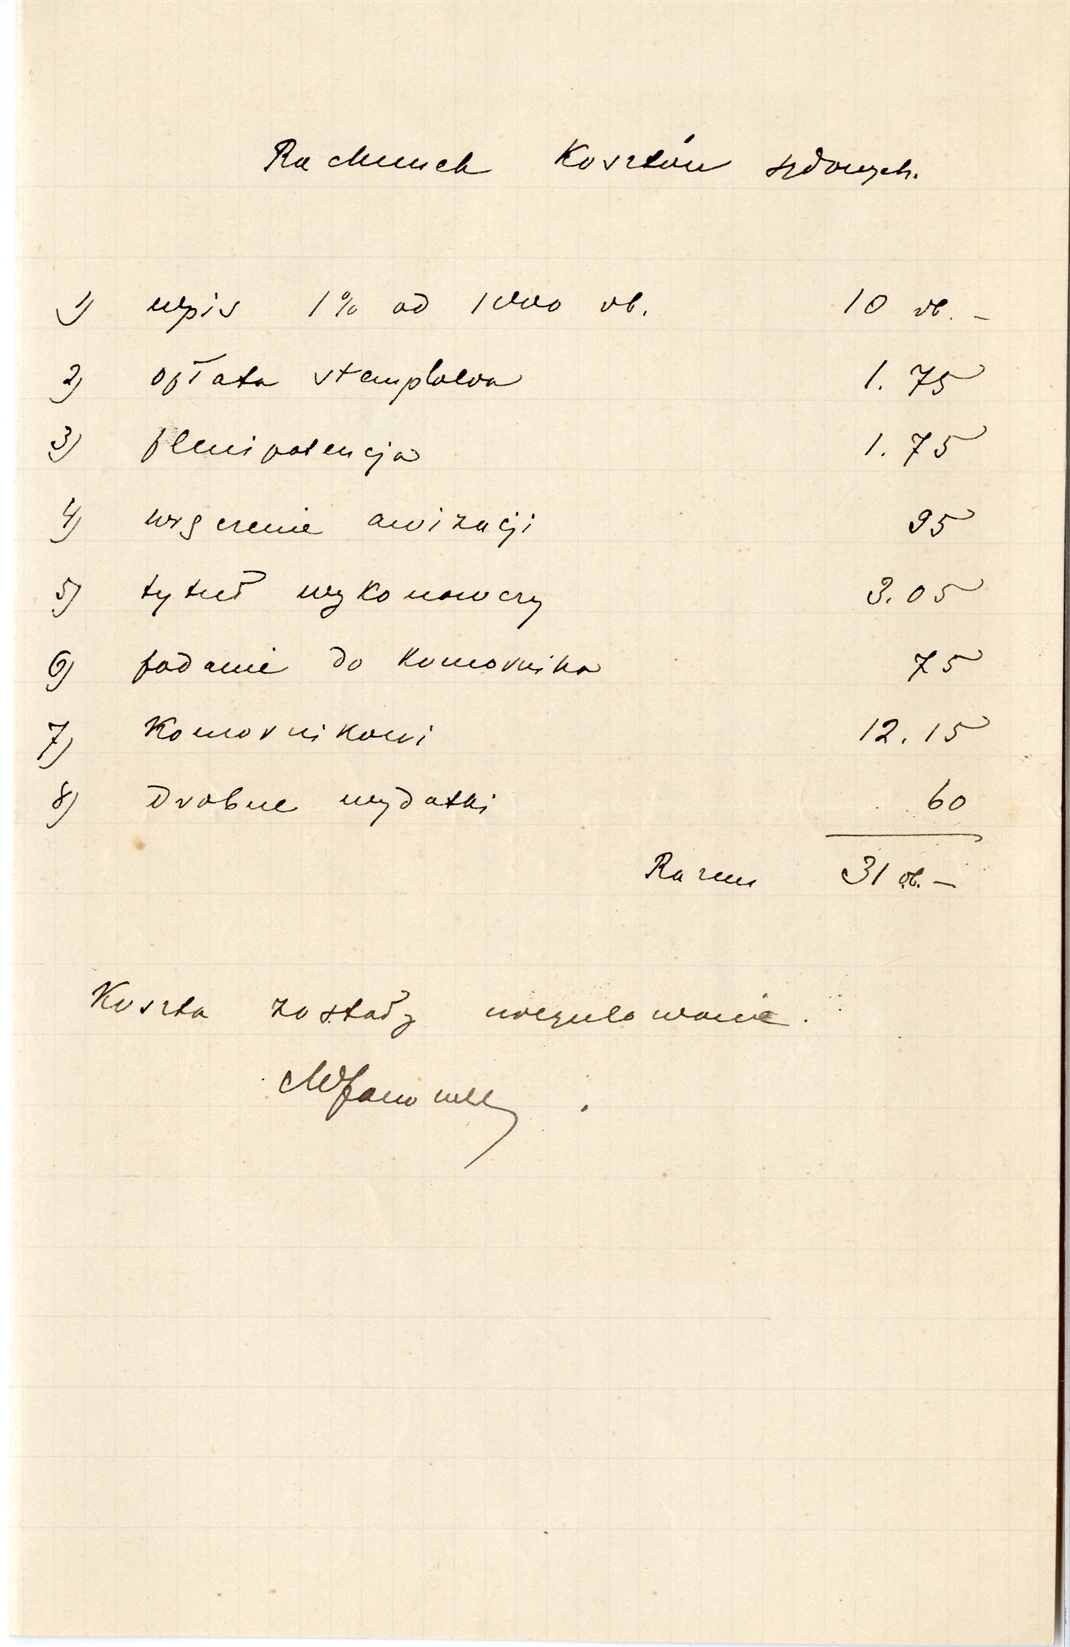 Rachunek Kosztów sądowych.
1) wpis 1% od 1000 rb. 10 rb. –
2) opłata stemplowa 1.75
3) plenipotencja 1.75
4) wręczenie awizacji 95
5) tytuł wykonawczy 3.05
6) podanie do Komornika 75
7) Komornikowi 12.15
8) Drobne wydatki 60
Razem 31 rb. –
Koszta zostały uregulowanie.